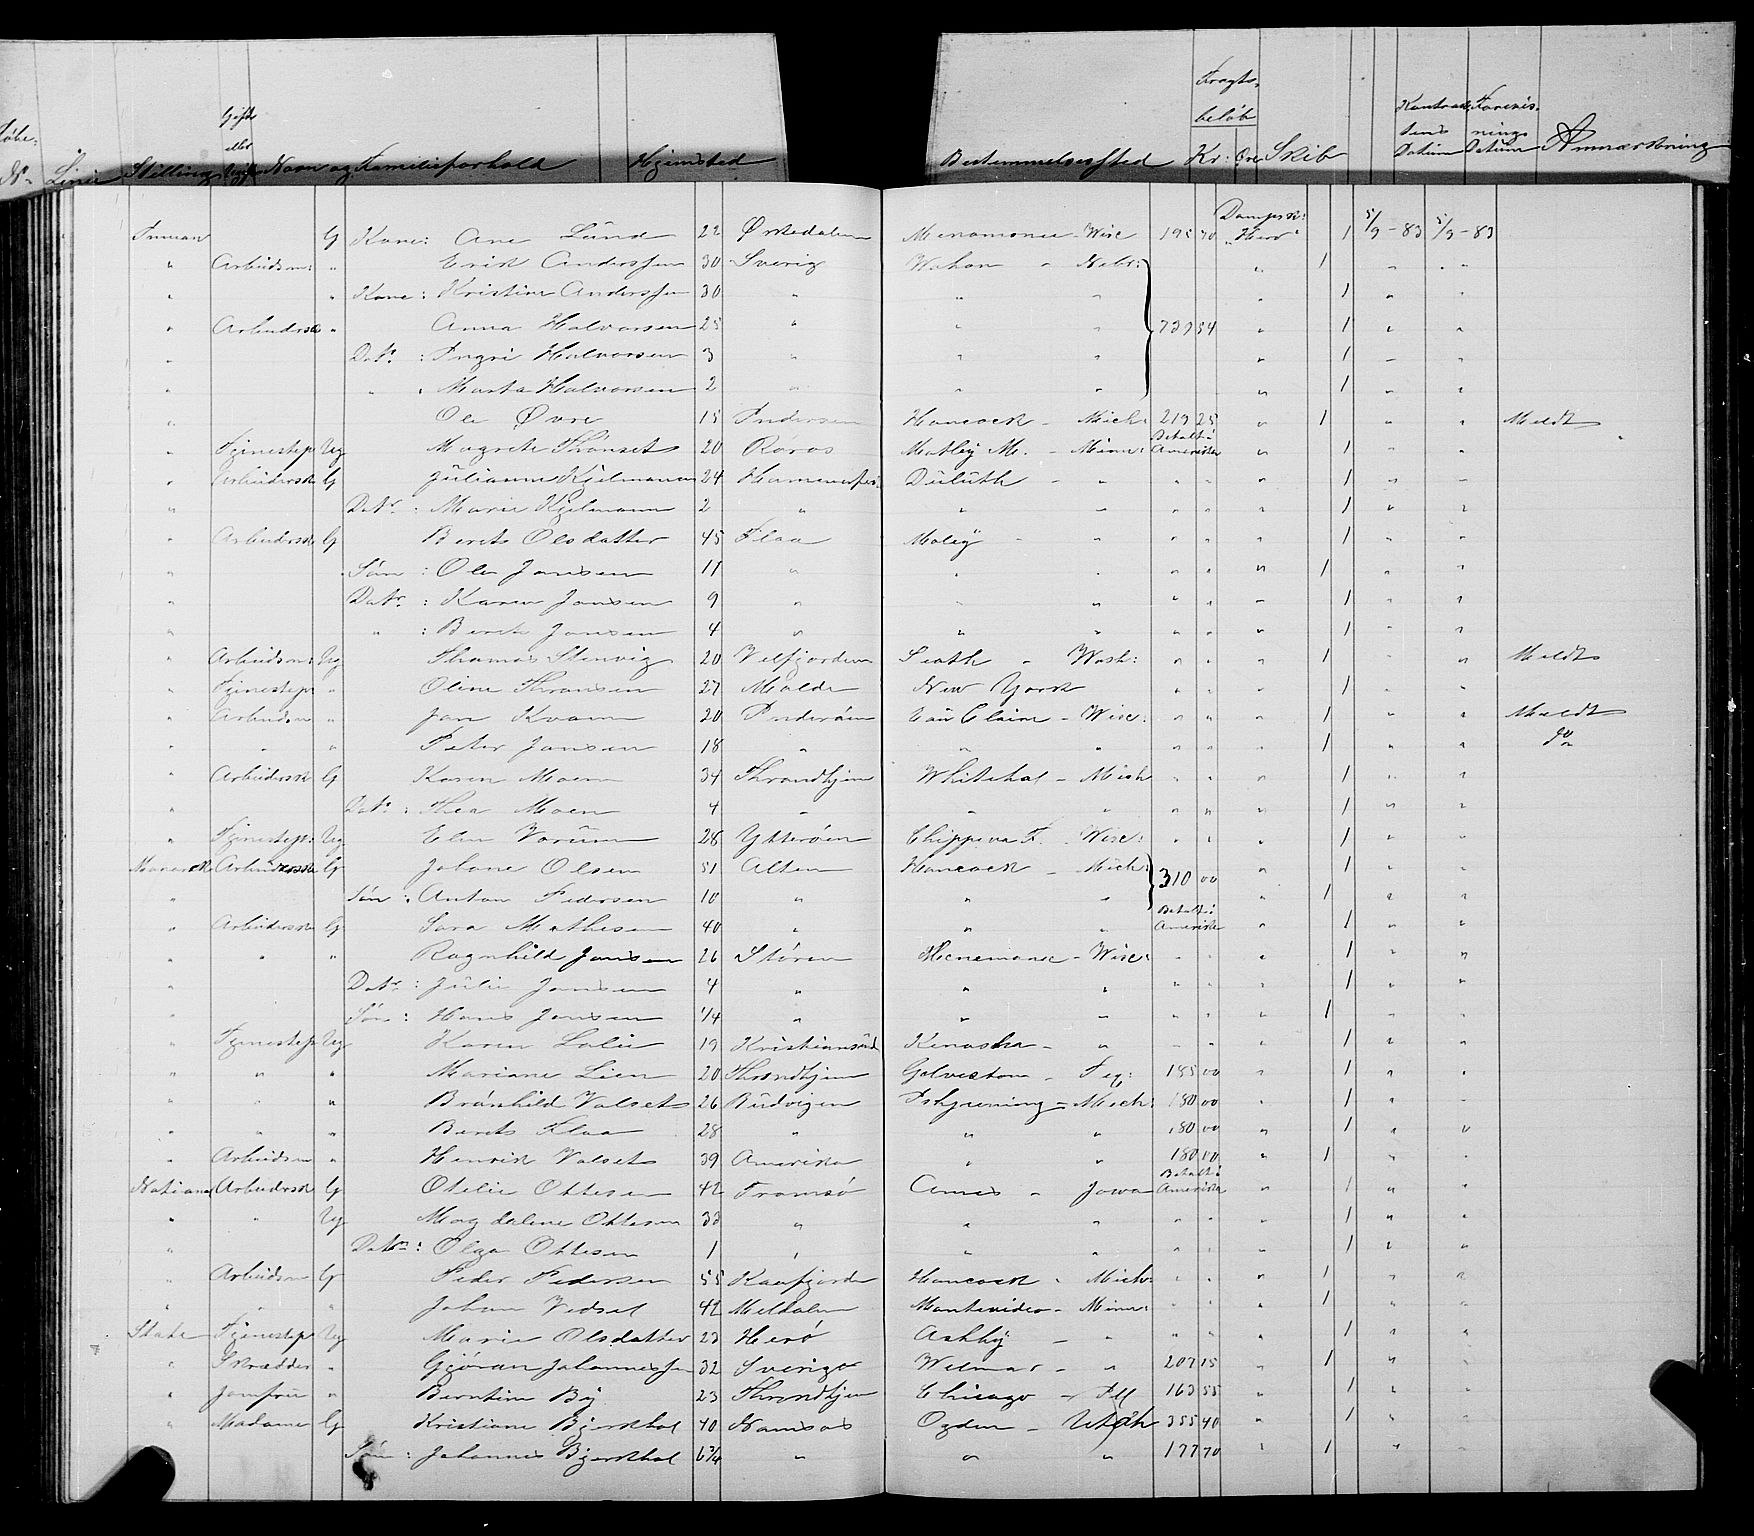 Løbe- No Linie Stilling Gift eller Ugift Navn og Familieforhold Hjemsted Bestemmelsessted Fragtbeløb Kr: Øre Skib Kontraktens Datum Forevisnings Datum Anmærkning
Inman G Kone: Ane Lund 22 Ørkedalen Menomonee Wisc 195 70 Dampsk: "Hero" 1 5/9-83 5/9-83
" Arbeidsm: " Erik Anderssen 30 Sverig Wahoo - Nebr: " 1 " "
" " Kone: Kristine Anderssen 30 " " " " 1 " "
" Arbeidersk " Anna Halvorsen 25 " " " 739 54 " 1 " "
" Datr: Ingri Halvorsen 3 " " " " 1 " "
" " : Marta Halvorsen 2 " " " " 1 " "
" Ole Øvre 15 Inderøen Hancock - Mich: 219 25 " 1 " " Meldt
" Tjenestep Ug Magrete Thønset 20 Røros Motley M. - Minn: Betalt i Amerika " 1 " "
" Arbeidersk G Julianne Kjelmann 24 Hammerfest Duluth - " " " " 1 " "
" Datr: Marie Kjelmann 2 " " " " " " 1 " "
" Arbeidersk G Berit Olsdatter 45 Flaa - " " " " 1 " "
" Søn: Ole Jansen 11 " " " " " " 1 " "
" Datr: Karen Jansen 9 " " " " " " 1 " "
" " : Berit Jansen 4 " " " " " " 1 " "
" Arbeidsm: Ug Thomas Stenvig 20 Velfjorden Seatle - Wash: " " " 1 " " Meldt
" Tjenestep " Oline Thronsen 27 Molde New York " " " 1 " "
" Arbeidsm " Jon Kvam 20 Inderøen Eau Claire - Wisc: " " " 1 " " Meldt
" " " Peter Jansen 18 " " " " " " 1 " " do
" Arbeidersk G Karen Moen 34 Throndhjem Whitehal - Mich " " " 1 " "
" Datr: Thea Moen 4 " " " " " " 1 " "
" Tjenestep: Ug Elen Vorum 28 Ytterøen Chippeva F. - Wisc: " " " 1 " "
Monarch Arbeidersk G Johane Olsen 51 Alten Hancock - Mich: 310 00 " 1 " "
" Søn: Anton Pedersen 10 " " " " 1 " "
" Arbeidersk G Sara Mathesen 40 " " " Betalt i Amerika " 1 " "
" " " Ragnhild Jansen 26 Støren - Wisc: " " " 1 " "
" Datr: Julie Jansen 4 " " " " " " 1 " "
" Søn: Hans Jansen 1/4 " " " " " " 1 " "
" Tjenestep Ug Karen Lalie 19 Kristiansund Kenosha - " " " " 1 " "
" " " Mariane Lien 20 Throndhjem Galveston - Tex: 185 00 " 1 " "
" " " Brønhild Valset 26 Budvigen Ishpeming - Mich: 180 00 " 1 " "
" " " Berit Flaa 28 " " " 180 00 " 1 " "
" Arbeidsm " Henrik Valset 39 Amerika " " 180 00 " 1 " "
National Arbeidersk G Otelie Ottesen 42 Tromsø Ames - Jowa Betalt i Amerika " 1 " "
" " Ug Magdalene Ottesen 33 " " " " " " 1 " "
" Datr: Olga Ottesen 1 " " " " " " 1 " "
" Arbeidsm G Peder Pedersen 55 Kaafjorden Hancock - Mich: " " " 1 " "
" " " Johan Vedset 42 Meldalen Montevideo - Minn: " " " 1 " "
State Tjenestep Ug Marie Olsdatter 23 Herø Ashby - " " " " 1 " "
" Skrædder " Gjøran Johannessen 32 Sverige Wilmar - " 207 15 " 1 " "
" Jomfru " Berntine By 23 Throndhjem Chicago - Ill 163 55 " 1 " "
" Madame G Kristiane Bjerkhol 40 Namsos Ogden - Utah 355 40 " 1 " "
" Søn: Johannes Bjerkhol 6 3/4 " " " 177 70 " 1 " "